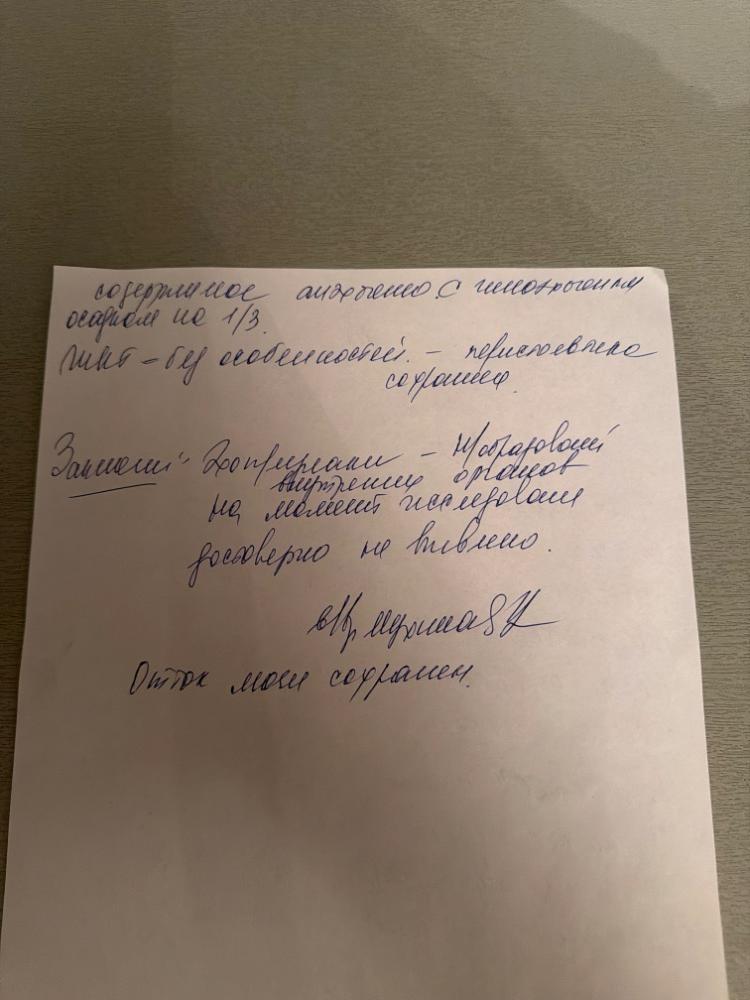 содержимое анэхогенно с гипоэхогенным
осадком на 1/3.
ЖКТ = без особенностей. – перистальтика
сохранена.
Заключ: Эхопризнаки – Н/образований
внутренних органов
на момент исследования
достоверно не выявлено.
Отток мочи сохранен.